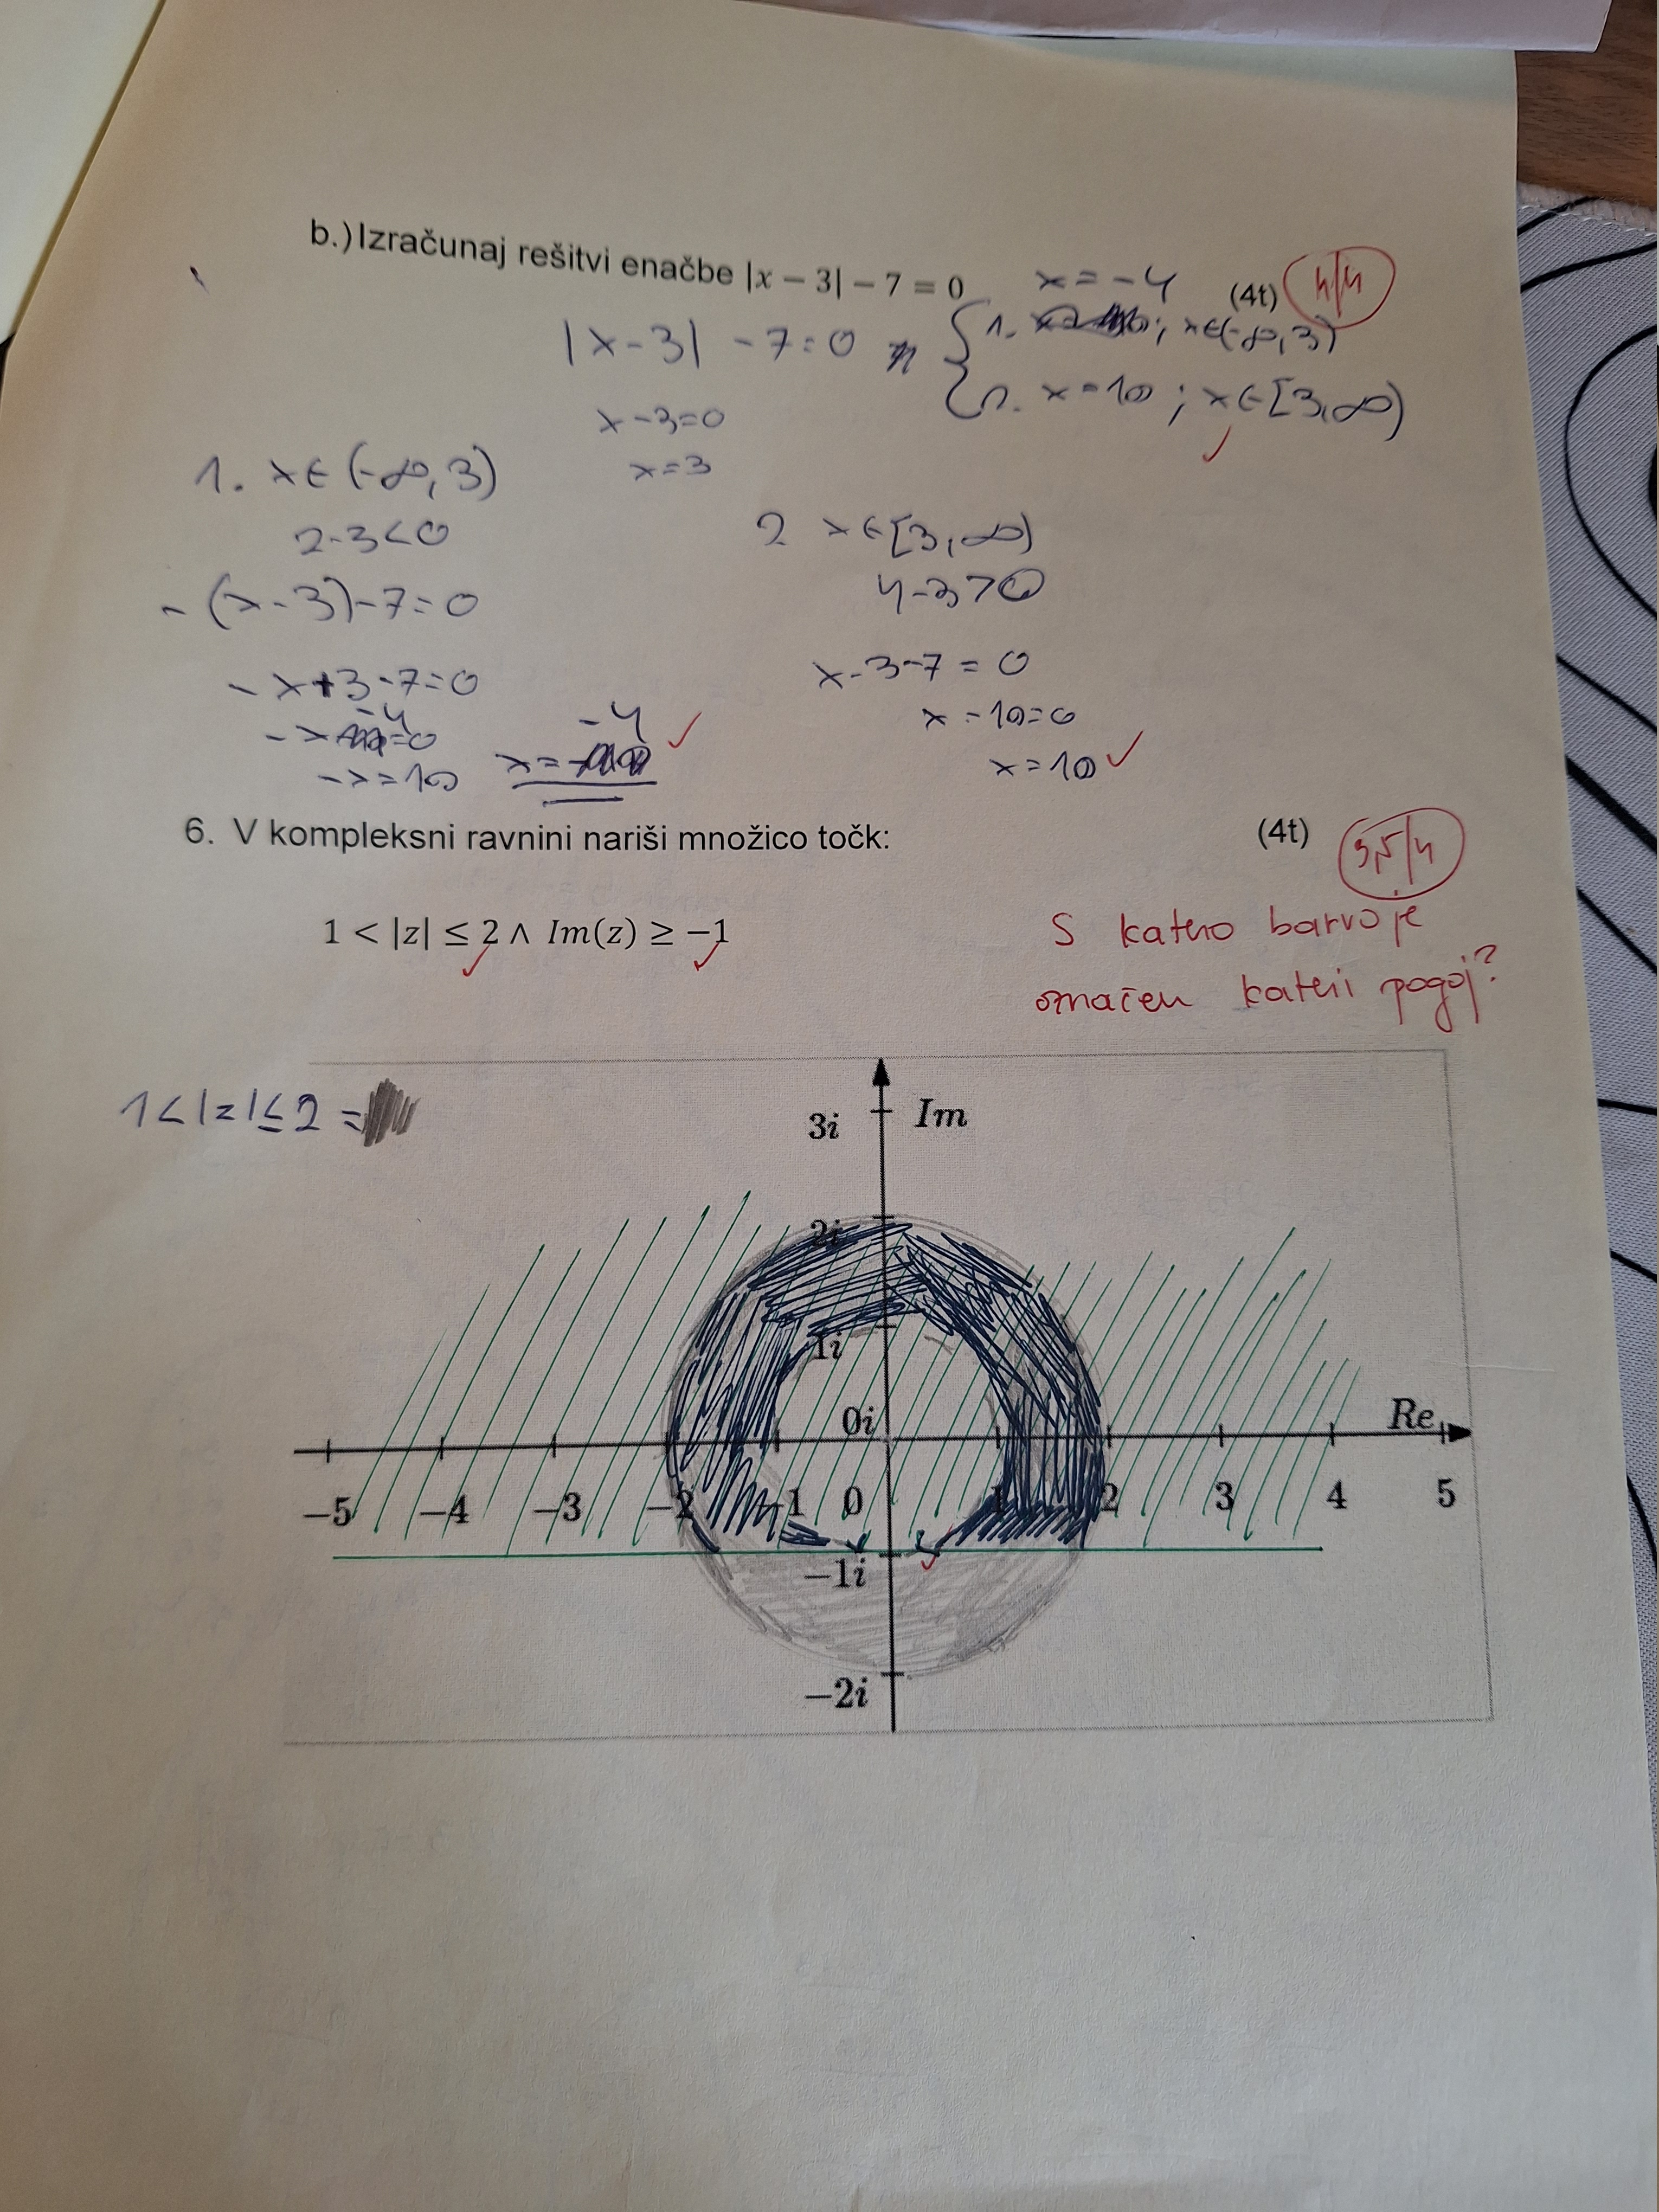 b.) Izračunaj rešitvi enačbe |x − 3| − 7 = 0 (4t) 4/4
x = -4
|x-3| -7=0 { 1. ; x∈(-∞,3)
2. x=10 ; x∈[3,∞)
x-3=0
x=3
1. x∈(-∞,3)
2-3<0
-(x-3)-7=0
-x+3-7=0
-4
-x =0
-x=10
-4
x=
2 x∈[3,∞)
4-3>0
x-3-7=0
x-10=0
x=10
6. V kompleksni ravnini nariši množico točk: (4t) 3,5/4
1 < |z| ≤ 2 ∧ Im(z) ≥ −1
S katero barvo je
označen kateri pogoj?
1<|z|≤2 =
3i Im
2i
1i
0i Re
−5 −4 −3 −2 −1 0 1 2 3 4 5
−1i
−2i